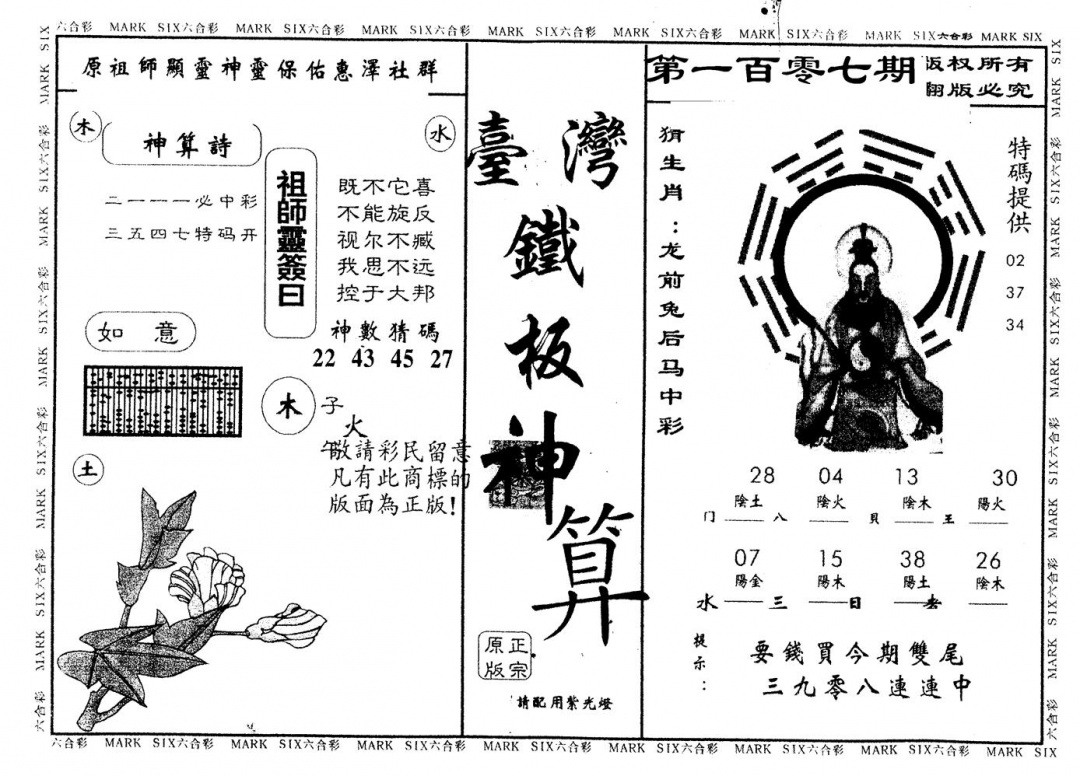 六合彩 MARK SIX六合彩 MARK SIX六合彩 MARK SIX六合彩 MARK SIX六合彩 MARK SIX六合彩 MARK SIX六合彩 MARK SIX六合彩 MARK SIX
原祖師顯靈神靈保佑惠澤社群
木
神算詩
水
二一一一必中彩
三五四七特码开
祖師靈簽曰
既不它喜
不能旋反
视尔不臧
我思不远
控于大邦
神數猜碼
22 43 45 27
如意
木
子
火
午
敬請彩民留意
凡有此商標的
版面為正版!
土
臺灣
鐵
板
神
算
正宗
原版
請配用紫光燈
第一百零七期
版权所有
翻版必究
猜生肖:龙前兔后马中彩
特碼提供
02
37
34
28 04 13 30
陰土 陰火 陰木 陽火
门 八 貝 王
07 15 38 26
陽金 陽木 陽土 陰木
水 三 日 老
提示:
要錢買今期雙尾
三九零八連連中
六合彩 MARK SIX六合彩 MARK SIX六合彩 MARK SIX六合彩 MARK SIX六合彩 MARK SIX六合彩 MARK SIX六合彩 MARK SIX六合彩 MARK SIX